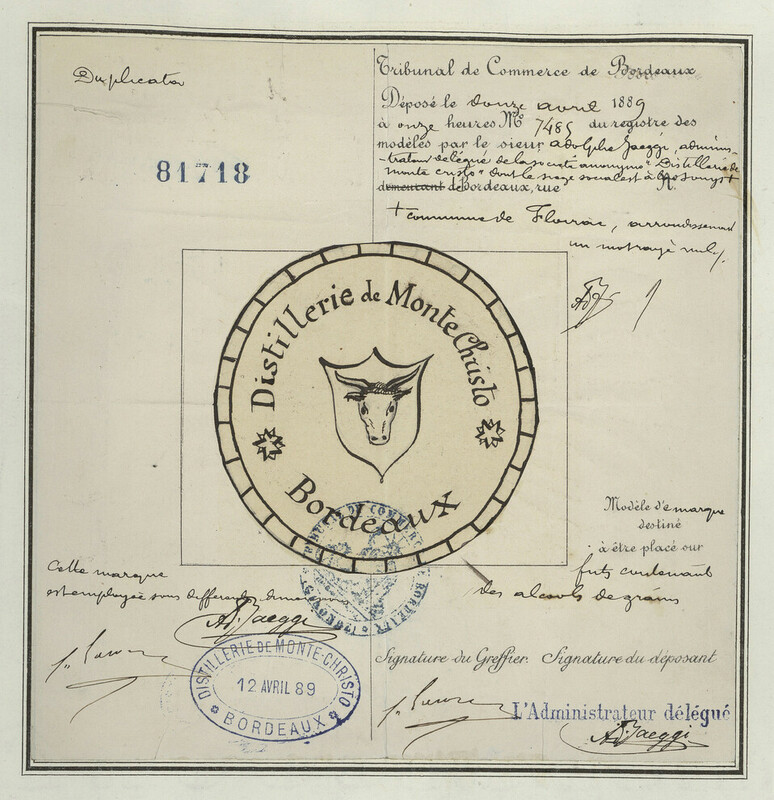 Duplicata
81718
Tribunal de Commerce de Bordeaux
Déposé le douze avril 1889
à onze heures No 7485 du registre des
modèles par le sieur Adolphe Jaeggi, adminis-
-trateur délégué de la société anonyme "Distillerie de
monte cristo" dont le siege social est à
demeurant de Bordeaux, rue N.
+ commune de Floirac, arrondissement
un mot rayé nul.
Distillerie de Monte Christo
Bordeaux
Modèle de marque
destiné
à être placé sur
futs contenant
des alcools de grains
Cette marque
est employée sous differentes dimensions
Ad. Jaeggi
DISTILLERIE DE MONTE-CHRISTO
12 AVRIL 89
BORDEAUX
Signature du Greffier. Signature du déposant
L'Administrateur délégué
Ad. Jaeggi